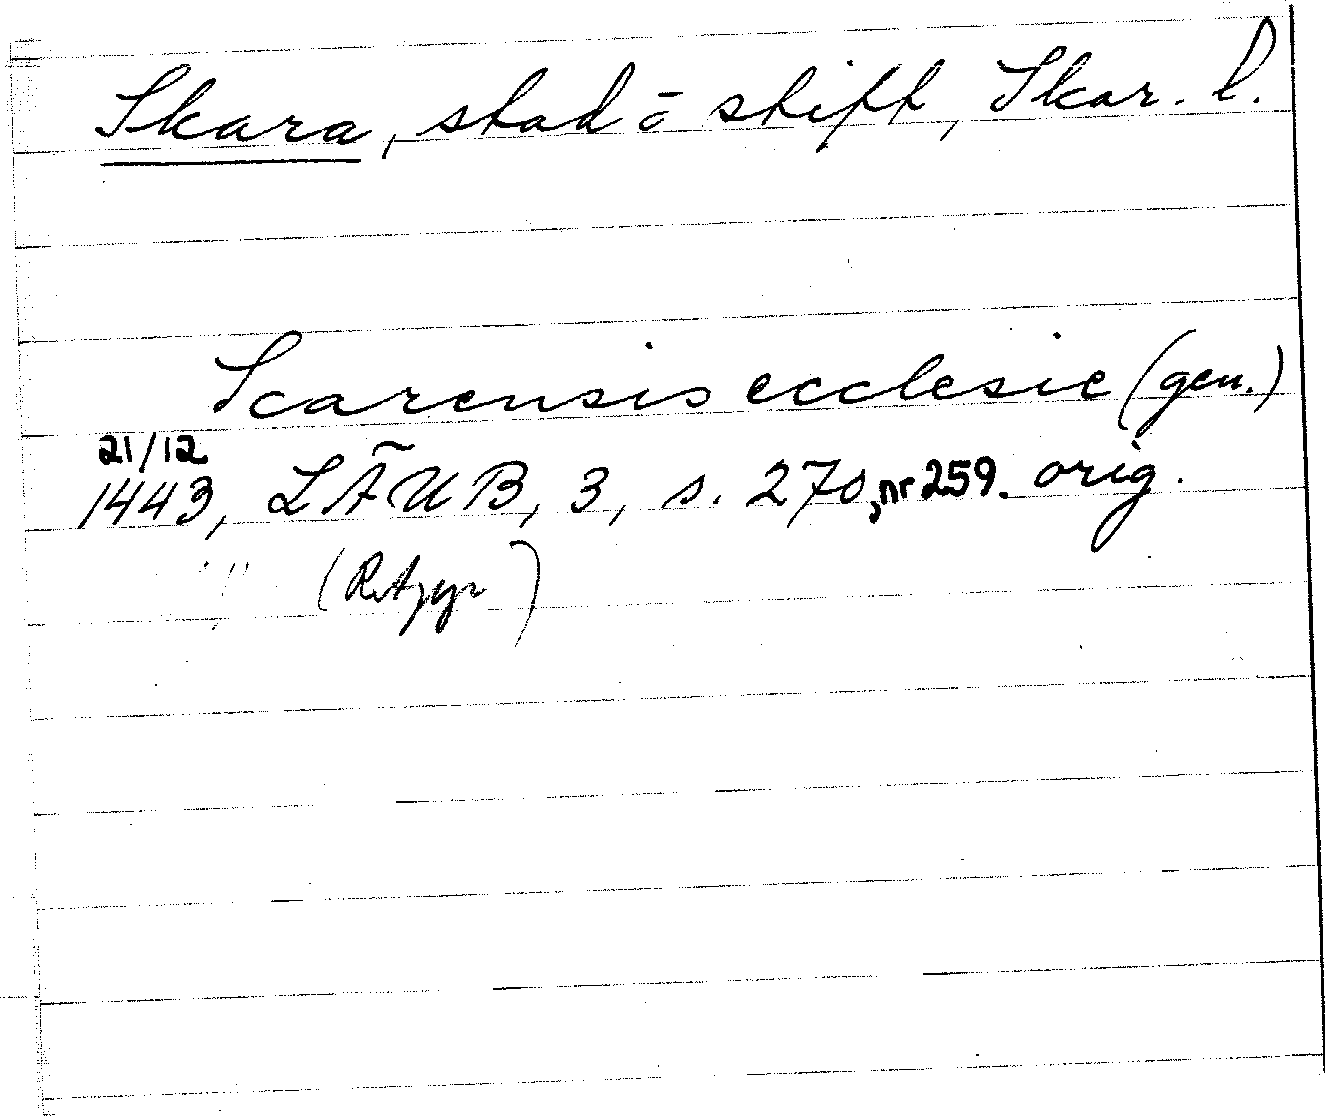 Skara, stad ō stift, Skar. l.
Scarensis ecclesie (gen.)
21/12
1443, LÄUB, 3, s. 270, nr 259. orig.